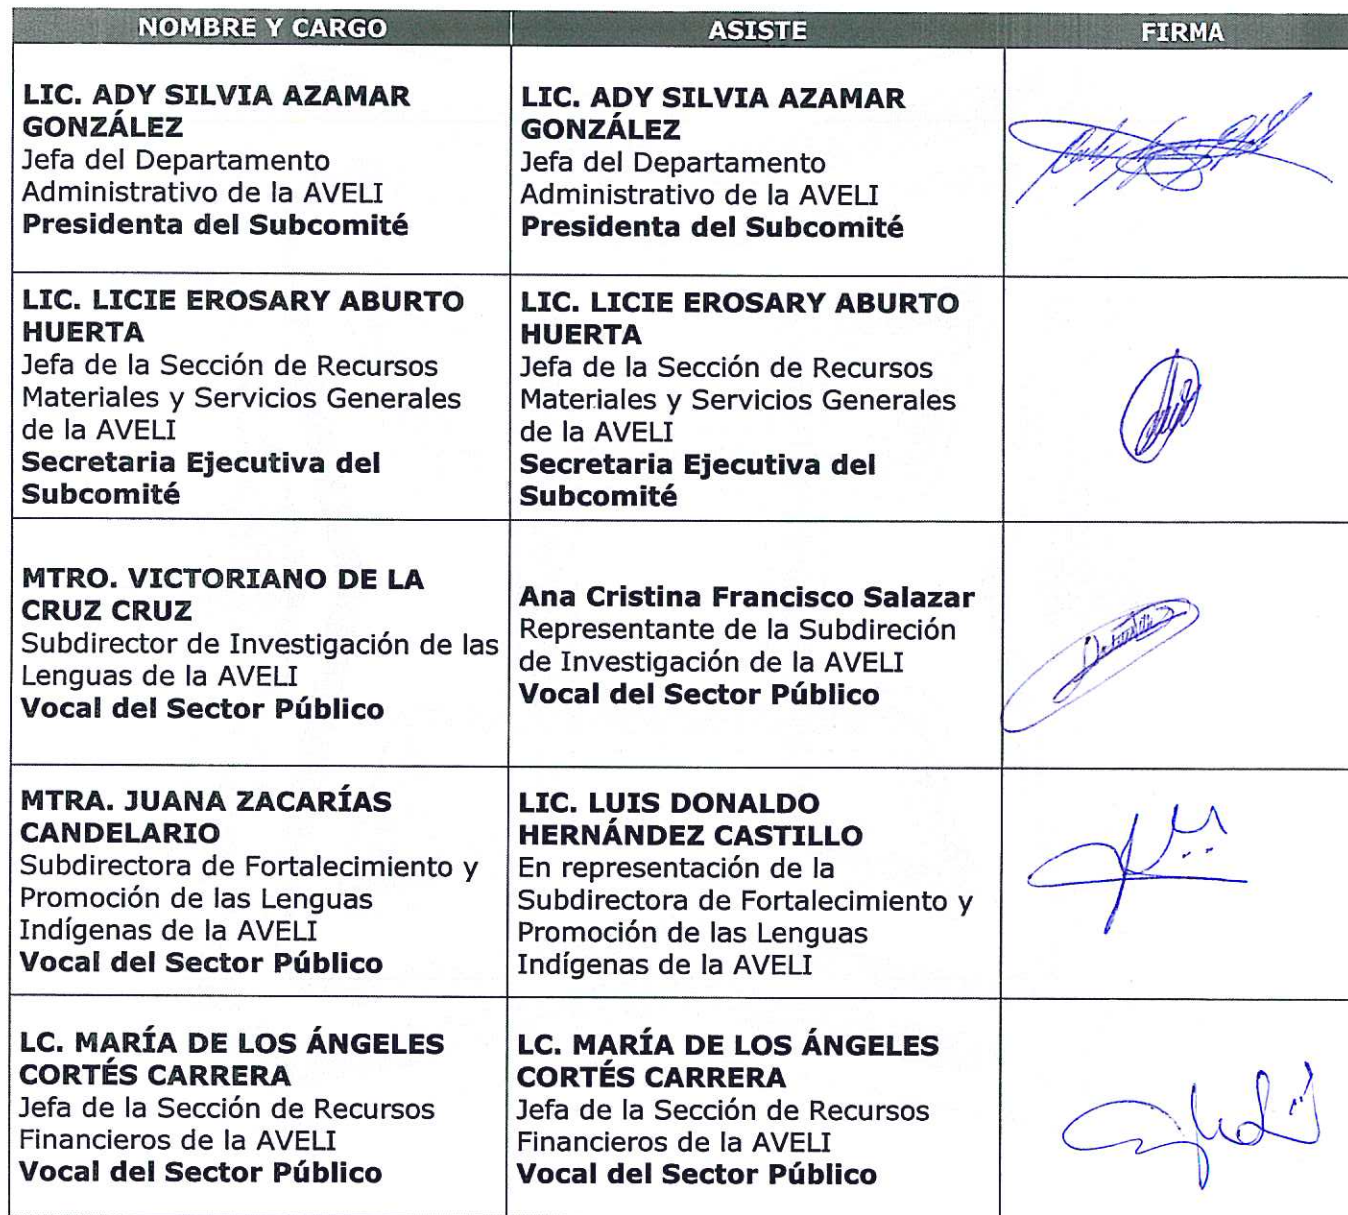 NOMBRE Y CARGO
ASISTE
FIRMA
LIC. ADY SILVIA AZAMAR
GONZÁLEZ
Jefa del Departamento
Administrativo de la AVELI
Presidenta del Subcomité
LIC. ADY SILVIA AZAMAR
GONZÁLEZ
Jefa del Departamento
Administrativo de la AVELI
Presidenta del Subcomité
LIC. LICIE EROSARY ABURTO
HUERTA
Jefa de la Sección de Recursos
Materiales y Servicios Generales
de la AVELI
Secretaria Ejecutiva del
Subcomité
LIC. LICIE EROSARY ABURTO
HUERTA
Jefa de la Sección de Recursos
Materiales y Servicios Generales
de la AVELI
Secretaria Ejecutiva del
Subcomité
MTRO. VICTORIANO DE LA
CRUZ CRUZ
Subdirector de Investigación de las
Lenguas de la AVELI
Vocal del Sector Público
Ana Cristina Francisco Salazar
Representante de la Subdireción
de Investigación de la AVELI
Vocal del Sector Público
MTRA. JUANA ZACARÍAS
CANDELARIO
Subdirectora de Fortalecimiento y
Promoción de las Lenguas
Indígenas de la AVELI
Vocal del Sector Público
LIC. LUIS DONALDO
HERNÁNDEZ CASTILLO
En representación de la
Subdirectora de Fortalecimiento y
Promoción de las Lenguas
Indígenas de la AVELI
LC. MARÍA DE LOS ÁNGELES
CORTÉS CARRERA
Jefa de la Sección de Recursos
Financieros de la AVELI
Vocal del Sector Público
LC. MARÍA DE LOS ÁNGELES
CORTÉS CARRERA
Jefa de la Sección de Recursos
Financieros de la AVELI
Vocal del Sector Público